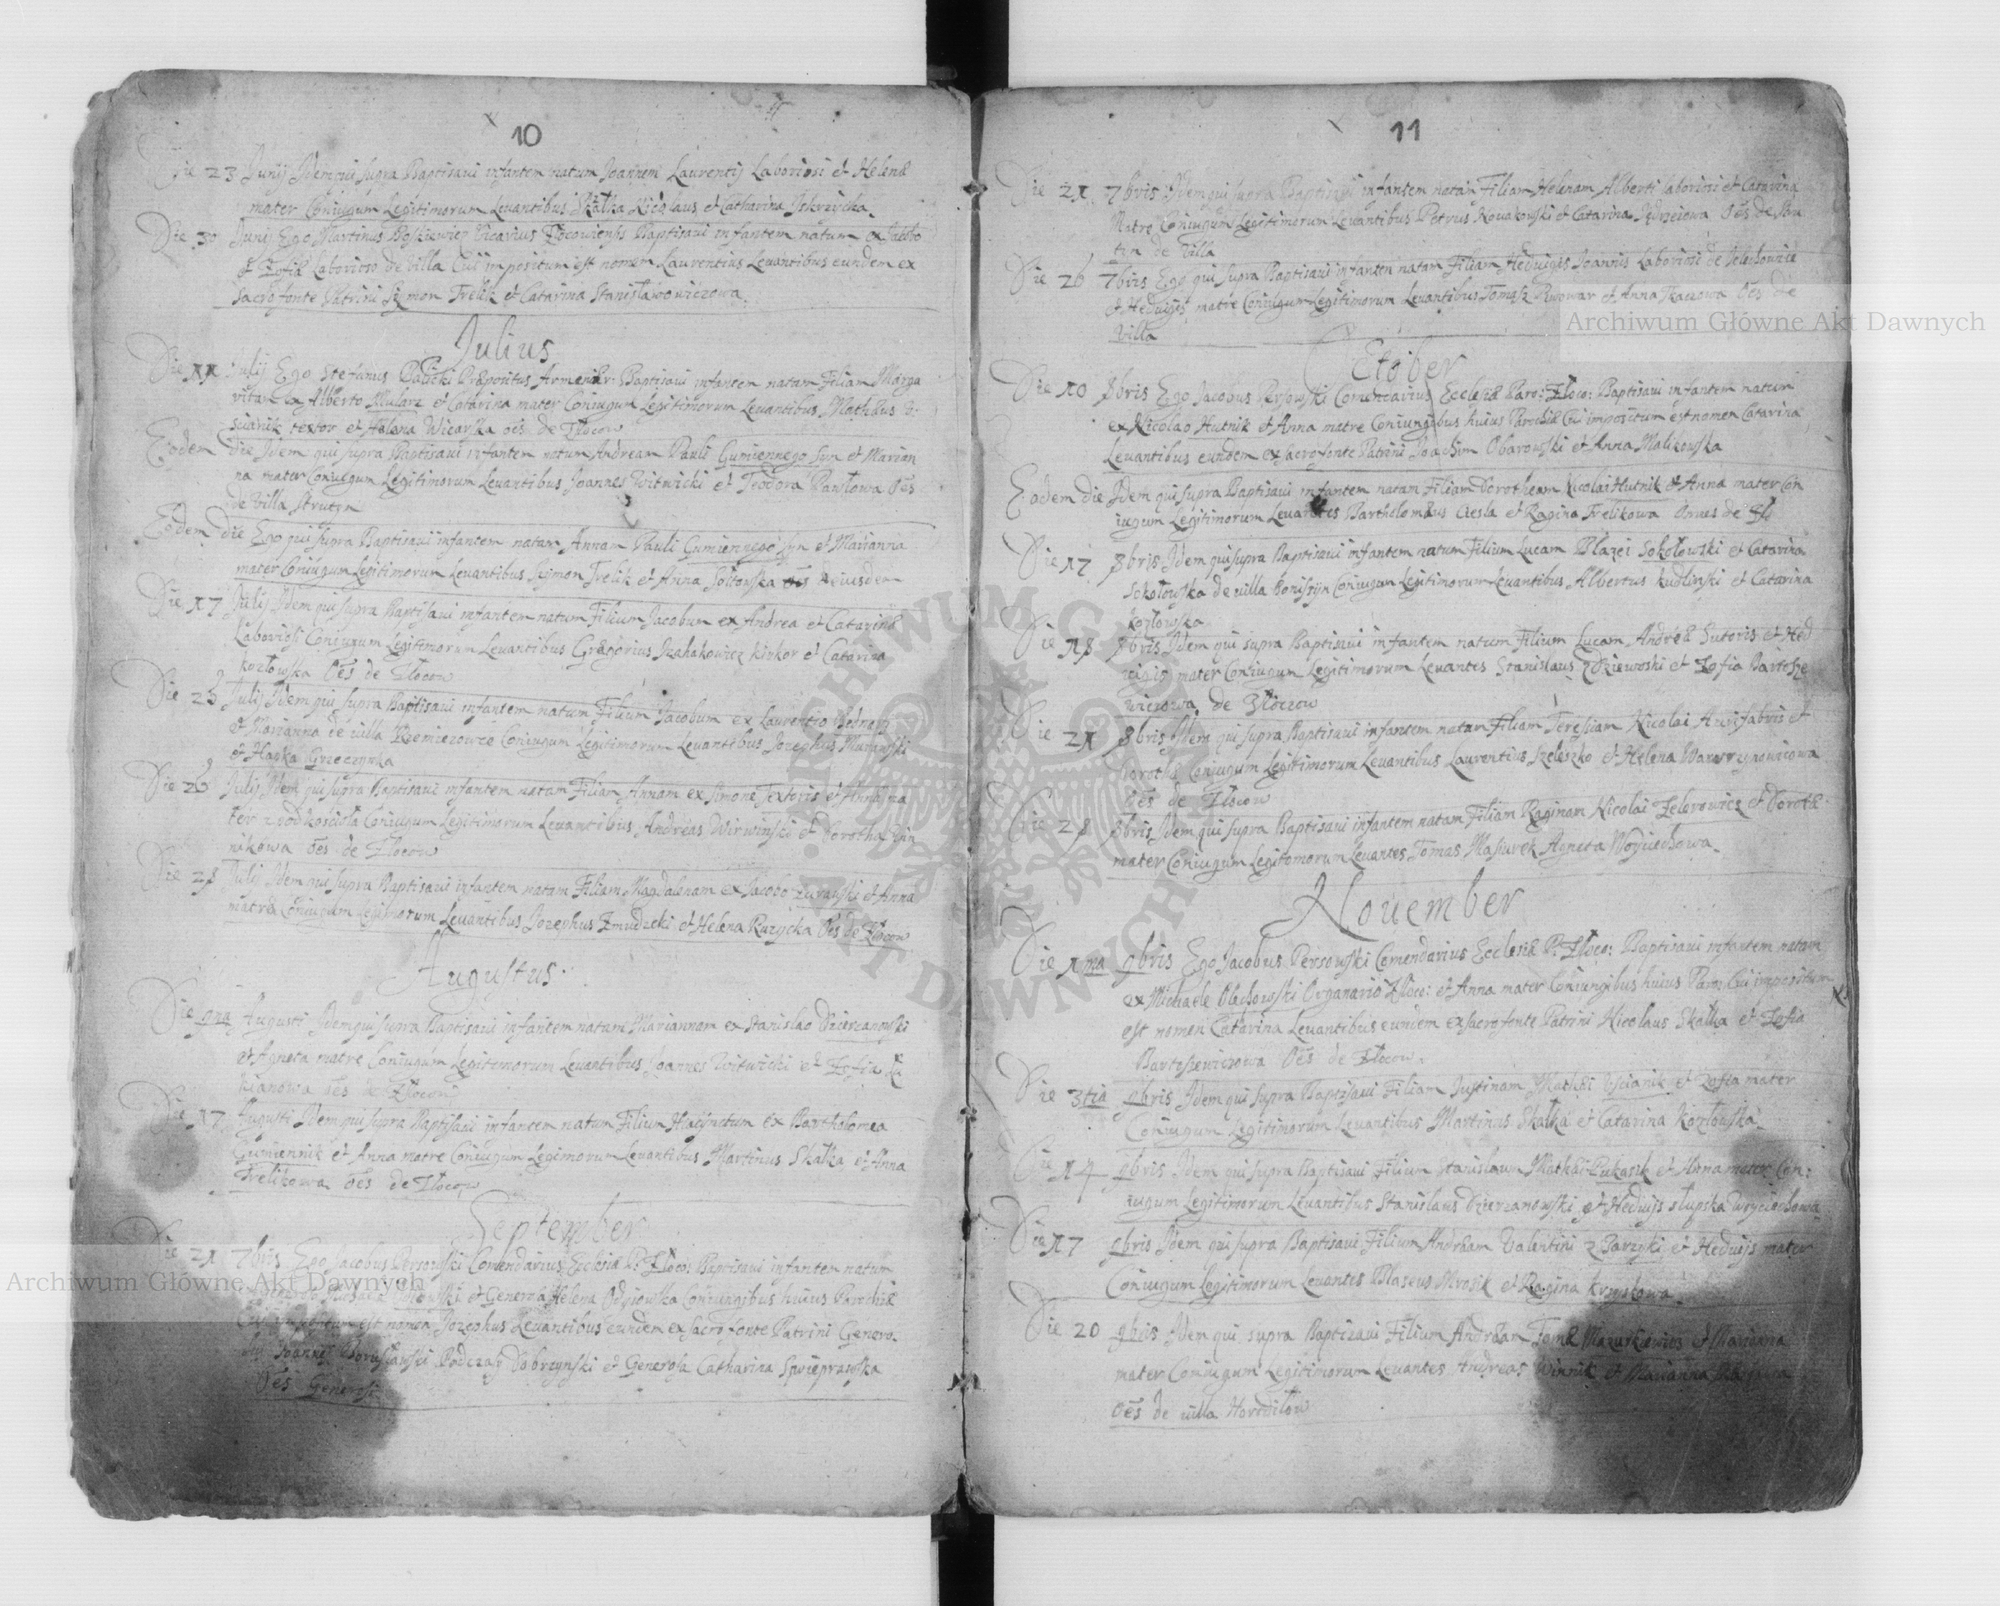 10
Die 23 Junij Idem qui supra Baptisavi infantem natum Joannem Laurentij Laboriosi et Helenæ
mater Coniugum Legitimorum Levantibus Skałka Nicolaus et Catharina Iskrzycka
Die 30 Junij Ego Martinus Vicarius Złocoviensis Baptisavi infantem natum ex
et Zofia Laborioso de Villa Cui impositum est nomen Laurentius Levantibus eundem ex
sacro fonte Patrini Szymon Frelik et Catarina Stanisławowiczowa
Julius
Die 11 Julij Ego Stefanus Præpositus Baptisavi infantem natam Filiam Marga
ritam ex Alberto Mularz et Catarina mater Coniugum Legitimorum Levantibus Mathæus V-
scianik textor et Helena oēs de Złocow
Eodem die Idem qui supra Baptisavi infantem natum Andream Pauli Gumiennego Syn et Marian
na mater Coniugum Legitimorum Levantibus Joannes Witwicki et Teodora Pawłowa oēs
de Villa Strutyn
Eodem die Ego qui supra Baptisavi infantem natam Annam Pauli Gumiennego Syn et Marianna
mater Coniugum Legitimorum Levantibus Szimon Frelik et Anna Sołtowska oēs eiusdem
Die 17 Julij Idem qui supra Baptisavi infantem natum Filium Jacobum ex Andrea et Catarina
Laboriosi Coniugum Legitimorum Levantibus Gregorius et Catarina
Kozłowska oēs de Złocow
Die 25 Julij Idem qui supra Baptisavi infantem natum Filium Jacobum ex Laurentio Bednarz
et Marianna de villa Coniugum Legitimorum Levantibus Jozephus Murawski
et Hanka
Die 26 Julij Idem qui supra Baptisavi infantem natam Filiam Annam ex Simone Textoris et Anna ma
ter z podkosciola Coniugum Legitimorum Levantibus Andreas Wirwinski et Dorotha Win
nikowa oēs de Złocow
Die 28 Julij Idem qui supra Baptisavi infantem natam Filiam Magdalenam ex Jacobo Zurawski et Anna
matre Coniugum Legimorum Levantibus Jozephus Zmudzki et Helena Ruzycka oēs de Złocow
Augustus
Die Augusti Idem qui supra Baptisavi infantem natam Mariannam ex Stanislao Dzierzanowski
et Agneta matre Coniugum Legitimorum Levantibus Joannes Witwicki et Zofia
oēs de Złocow
Die 17 Augusti Idem qui supra Baptisavi infantem natum Filium Hiacynctum ex Bartholomea
Gumiennik et Anna matre Coniugum Legimorum Levantibus Martinus Skałka et Anna
Frelikowa oēs de Złocow
September
Die 21 7bris Ego Jacobus Persowski Comendarius Ecclesiæ P: Złoco: Baptisavi infantem natum
et Generosa Helena Coniungibus huius Parochiæ
est nomen Jozephus Levantibus eundem ex sacro fonte Patrini Genero-
Joannes Borusławski Podczaszy Dobrzynski et Generosa Catharina
oēs Generosi
11
Die 21 7bris Idem qui supra Baptisavi infantem natam Filiam Helenam Alberti laboriosi et Catarina
Matre Coniugum Legitimorum Levantibus Petrus Nowakowski et Catarina Jędrzeiowa oēs de Stru
tyn de Villa
Die 26 7bris Ego qui supra Baptisavi infantem natam Filiam Hedviges Joannis Laboriosi de
et Hedviges matre Coniugum Legitimorum Levantibus Tomasz Piwowar et Anna Tkaczowa oēs de
Villa
October
Die 10 8bris Ego Jacobus Persowski Comendarius Ecclesiæ Paro: Złoco: Baptisavi infantem natum
ex Nicolao Hutnik et Anna matre Coniungibus huius Parochiæ Cui impositum est nomen Catarina
Levantibus eundem ex sacro fonte Patrini Joachim Obarowski et Anna Malikowska
Eodem die Idem qui supra Baptisavi infantem natam Filiam Dorotheam Nicolai Hutnik et Anna mater Con
iugum Legitimorum Levantes Bartholomæus Ciesla et Ragina Frelikowa Omnes de Zło
Die 17 8bris Idem qui supra Baptisavi infantem natum Filium Lucam Blazei Sokołowski et Catarina
Sokołowska de villa Coniugum Legitimorum Levantibus Albertus Kudlinski et Catarina
Kozłowska
Die 18 8bris Idem qui supra Baptisavi infantem natum Filium Lucam Andreæ Sutoris et Hed
vigis mater Coniugum Legitimorum Levantes Stanislaus et Zofia Bartosze
wiczowa de Złoczow
Die 21 8bris Idem qui supra Baptisavi infantem natam Filiam Teresiam Nicolai Aurifabris et
Dorothe Coniugum Legitimorum Levantibus Laurentius Szeleszko et Helena Wawrzynowiczowa
oēs de Złocow
Die 28 8bris Idem qui supra Baptisavi infantem natam Filiam Raginam Nicolai et Dorotæ
mater Coniugum Legitomorum Levantes Tomas Masiurek Agneta Woyciechowa
November
Die 1ma 9bris Ego Jacobus Persowski Comendarius Ecclesiæ P: Złoco: Baptisavi infantem natam
ex Michaele Olachowski Organario Złoco: et Anna mater Coniungibus huius Paro: Cui impositum
est nomen Catarina Levantibus eundem ex sacro fonte Patrini Nicolaus Skałka et Zofia
Bartoszewiczowa oēs de Złocow
Die 3tia 9bris Idem qui supra Baptisavi Filiam Justinam Mathæi Uscianik et Zofia mater
Coniugum Legitimorum Levantibus Martinus Skałka et Catarina Kozłowska
Die 14 9bris Idem qui supra Baptisavi Filium Stanislaum Mathæi Łukasik et Anna mater Con:
iugum Legitimorum Levantibus Stanislaus Dzierzanowski et Hedvijs Słupska Woyciechowa
Die 17 9bris Idem qui supra Baptisavi Filium Andræam Valentini et Hedvijs mater
Coniugum Legitimorum Levantes Blaseus Mrosik et Ragina Krzysłowa
Die 20 9bris Idem qui supra Baptizavi Filium Andræam Tomæ Mazurkiewicz et Marianna
mater Coniugum Legitimorum Levantes Andreas Winnik et Marianna
oēs de villa Horodiłow
Archiwum Główne Akt Dawnych
Archiwum Główne Akt Dawnych
ARCHIWUM GŁÓWNE AKT DAWNYCH